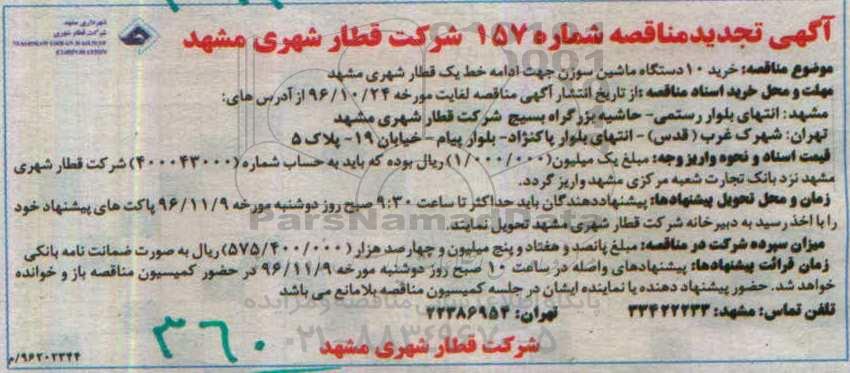 آگهی تجدیدمناقصه شماره ۱۵۷ شرکت قطار شهری مشهد
شهرداری مشهد
شرکت قطار شهری
موضوع مناقصه: خرید ۱۰ دستگاه ماشین سوزن جهت ادامه خط یک قطار شهری مشهد
مهلت و محل خرید اسناد مناقصه :از تاریخ انتشار آگهی مناقصه لغایت مورخه ۹۶/۱۰/۲۴ از آدرس های:
مشهد: انتهای بلوار رستمی- حاشیه بزرگراه بسیج شرکت قطار شهری مشهد
تهران: شهرک غرب (قدس) - انتهای بلوار پاکنژاد- بلوار پیام- خیابان ۱۹- پلاک ۵
قیمت اسناد و نحوه واریز وجه: مبلغ یک میلیون(۱/۰۰۰/۰۰۰) ریال بوده که باید به حساب شماره (۴۰۰۰۴۳۰۰۰) شرکت قطار شهری
مشهد نزد بانک تجارت شعبه مرکزی مشهد واریز گردد.
زمان و محل تحویل پیشنهادها: پیشنهاددهندگان باید حداکثر تا ساعت ۹:۳۰ صبح روز دوشنبه مورخه ۹۶/۱۱/۹ پاکت های پیشنهاد خود
را با اخذ رسید به دبیرخانه شرکت قطار شهری مشهد تحویل نمایند.
میزان سپرده شرکت در مناقصه: مبلغ پانصد و هفتاد و پنج میلیون و چهارصد هزار (۵۷۵/۴۰۰/۰۰۰) ریال به صورت ضمانت نامه بانکی
زمان قرائت پیشنهادها: پیشنهادهای واصله در ساعت ۱۰ صبح روز دوشنبه مورخه ۹۶/۱۱/۹ در حضور کمیسیون مناقصه باز و خوانده
خواهد شد. حضور پیشنهاد دهنده یا نماینده ایشان در جلسه کمیسیون مناقصه بلامانع می باشد
تلفن تماس: مشهد: ۳۳۴۲۲۲۳۳ تهران: ۲۲۳۸۶۹۵۴
شرکت قطار شهری مشهد
۳۶۰
۹۶۲۰۲۳۴۴/م
ParsNamadData
پایگاه اطلاع رسانی مناقصه و مزایده